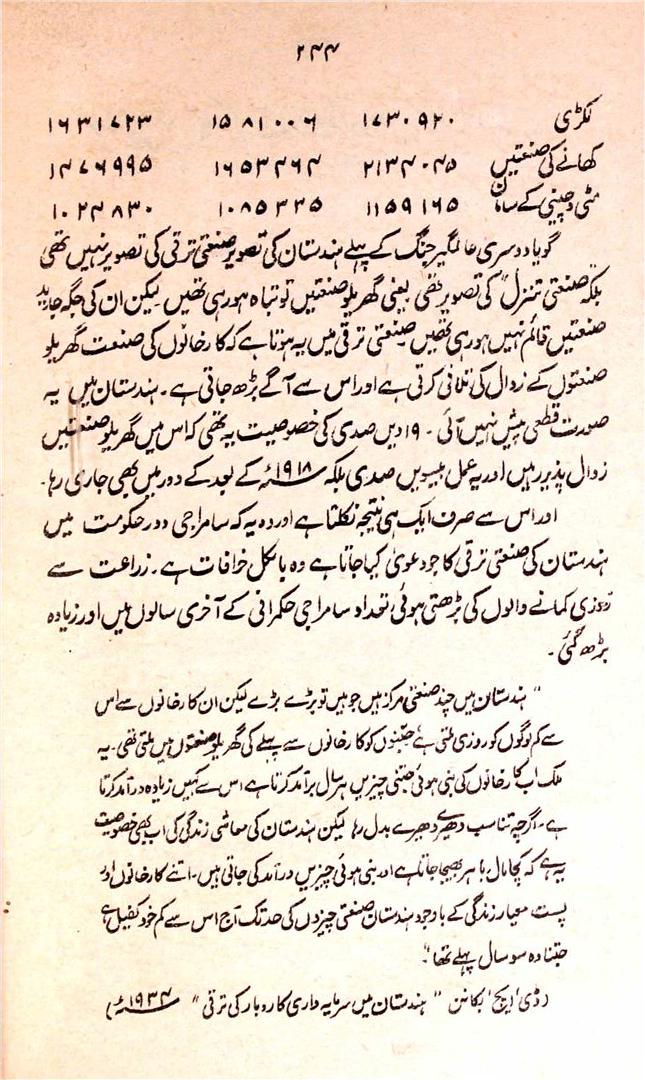 ۲۴۴
لکڑی ۱۷۳۰۹۲۰ ۱۵۸۱۰۰۶ ۱۶۳۱۷۲۳
کھانے کی صنعتیں ۲۱۳۴۰۴۵ ۱۶۵۳۴۶۴ ۱۴۷۶۹۹۵
مٹی و چینی کے سامان ۱۱۵۹۱۶۵ ۱۰۸۵۳۳۵ ۱۰۲۴۸۳۰
گویا دوسری عالمگیر جنگ کے پہلے ہندستان کی تصویر صنعتی ترقی کی تصویر نہیں تھی
بلکہ "صنعتی تنزل" کی تصویر تھی یعنی گھریلو صنعتیں تو تباہ ہو رہی تھیں لیکن ان کی جگہ جدید
صنعتیں قائم نہیں ہو رہی تھیں صنعتی ترقی میں یہ ہوتا ہے کہ کارخانوں کی صنعت گھریلو
صنعتوں کے زوال کی تلافی کرتی ہے اور اس سے آگے بڑھ جاتی ہے۔ ہندستان میں یہ
صورت قطعی پیش نہیں آئی ۔ ۱۹ ویں صدی کی خصوصیت یہ تھی کہ اس میں گھریلو صنعتیں
زوال پذیر رہیں اور یہ عمل بیسویں صدی بلکہ ۱۹۱۸ء کے بعد کے دور میں بھی جاری رہا۔
اور اس سے صرف ایک ہی نتیجہ نکلتا ہے اور وہ یہ کہ سامراجی دور حکومت میں
ہندستان کی صنعتی ترقی کا جو دعویٰ کیا جاتا ہے وہ بالکل خرافات ہے۔ زراعت سے
روزی کمانے والوں کی بڑھتی ہوئی تعداد سامراجی حکمرانی کے آخری سالوں میں اور زیادہ
بڑھ گئی ۔
"ہندستان میں چند صنعتی مرکز ہیں جو ہیں تو بڑے بڑے لیکن ان کارخانوں سے اس
سے کم لوگوں کو روزی ملتی ہے جتنوں کو کارخانوں سے پہلے کی گھریلو صنعتوں میں ملتی تھی۔ یہ
ملک اب کارخانوں کی بنی ہوئی جتنی چیزیں ہر سال برآمد کرتا ہے اس سے کہیں زیادہ درآمد کرتا
ہے۔ اگرچہ تناسب دھیرے دھیرے بدل رہا لیکن ہندستان کی معاشی زندگی کی اب بھی خصوصیت
یہ ہے کہ کچا مال باہر بھیجا جاتا ہے اور بنی ہوئی چیزیں درآمد کی جاتی ہیں۔ اتنے کارخانوں اور
پست معیار زندگی کے باوجود ہندستان صنعتی چیزوں کی حد تک آج اس سے کم خود کفیل ہے
جتنا وہ سو سال پہلے تھا"۔
(ڈی' ایچ' بکانن "ہندستان میں سرمایہ داری کاروبار کی ترقی" ۱۹۳۴ء)